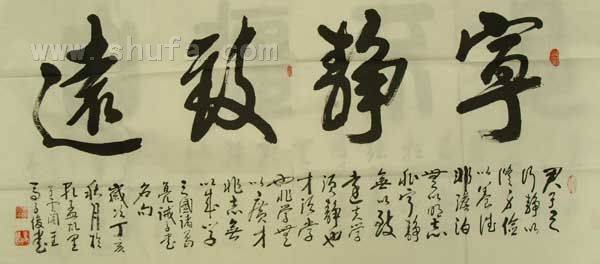 寧静致遠
君子之
行静以
修身儉
以養德
非澹泊
無以明志
非寧静
無以致
遠夫学
須静也
才須学
也非学無
以廣才
非志無
以成学
三國諸葛
亮誡子書
名句
歲次丁亥
秋月於
孔孟故里
www.shufa.com